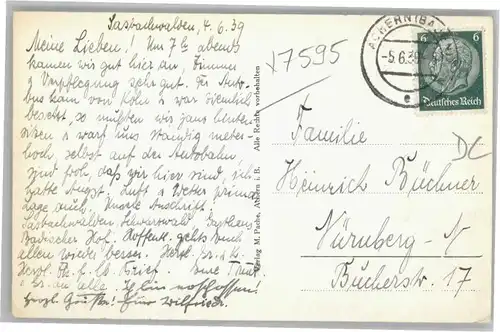 Sasbachwalden, 4. 6. 39
Meine Lieben! Um 7¼ abends
kamen wir gut hier an, Zimmer
u Verpflegung sehr gut. Der Auto-
bus kam von Köln u war ziemlich
besetzt, so mußten wir ganz hinten
sitzen u warf uns ständig meter-
hoch, selbst auf der Autobahn
sind froh, daß wir hier sind, ich
hatte Angst. Luft u Wetter prima
Lage auch. Unsere Anschrift:
Sasbachwalden Schwarzwald Gasthaus
Badischer Hof. Hoffentl. gehts Euch
allen wieder besser. Herzl.
Herzl. Brief.
an alle.
herzl Grüße! Eure
17595
Alle Rechte vorbehalten
Verlag M. Pache, Achern i. B.
ACHERN (BA
-5.6.39
e
6 6
Deutsches Reich
Familie
Heinrich Büchner
Nürnberg-N
Bucherstr. 17